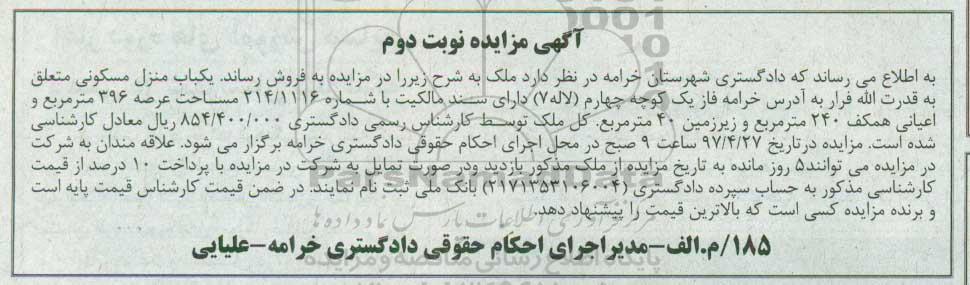 آگهی مزایده نوبت دوم
به اطلاع می رساند که دادگستری شهرستان خرامه در نظر دارد ملک به شرح زیررا در مزایده به فروش رساند. یکباب منزل مسکونی متعلق
به قدرت الله فرار به آدرس خرامه فاز یک کوچه چهارم (لاله۷) دارای سند مالکیت با شماره ۲۱۴/۱۱۱۶ مساحت عرصه ۳۹۶ مترمربع و
اعیانی همکف ۲۴۰ مترمربع و زیرزمین ۴۰ مترمربع. کل ملک توسط کارشناس رسمی دادگستری ۸۵۴/۴۰۰/۰۰۰ ریال معادل کارشناسی
شده است. مزایده درتاریخ ۹۷/۴/۲۷ ساعت ۹ صبح در محل اجرای احکام حقوقی دادگستری خرامه برگزار می شود. علاقه مندان به شرکت
در مزایده می توانند۵ روز مانده به تاریخ مزایده از ملک مذکور بازدید ودر صورت تمایل به شرکت در مزایده با پرداخت ۱۰ درصد از قیمت
کارشناسی مذکور به حساب سپرده دادگستری (۲۱۷۱۳۵۳۱۰۶۰۰۴) بانک ملی ثبت نام نمایند. در ضمن قیمت کارشناس قیمت پایه است
و برنده مزایده کسی است که بالاترین قیمت را پیشنهاد دهد.
۱۸۵/م.الف-مدیراجرای احکام حقوقی دادگستری خرامه-علیایی
پایگاه اطلاع رسانی مناقصه و مزایده